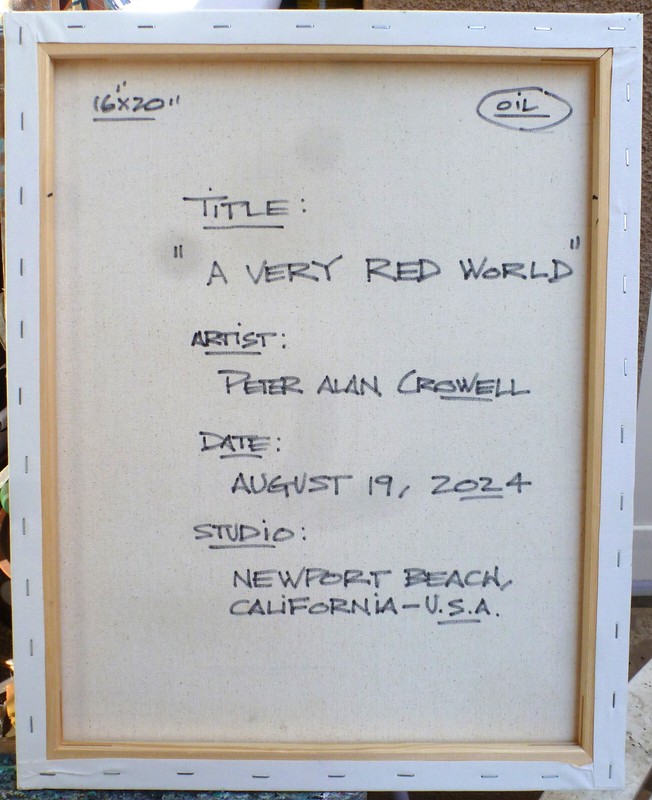 16"x20"
OIL
TITLE:
"A VERY RED WORLD"
ARTIST:
PETER ALAN CROWELL
DATE:
AUGUST 19, 2024
STUDIO:
NEWPORT BEACH,
CALIFORNIA-U.S.A.